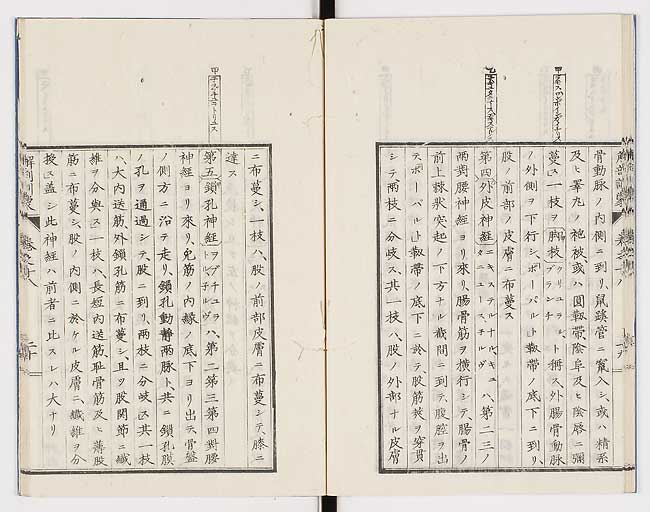 骨動脉ノ内側ニ到リ、鼠蹊管ニ竄入シ、或ハ精系
及ヒ睾丸ノ袍被或ハ圓靱帶、陰阜及ヒ陰唇ニ彌
蔓ス一枝ヲ脚枝ト稱ス外腸骨動脉
ノ外側ヲ下行シ、ポーパルト靱帶ノ底下ニ到リ、
股ノ前部ノ皮膚ニ布蔓ス
第四外皮神経ハ、第二三ノ
兩對腰神経ヨリ來リ、腸骨筋ヲ横行シテ、腸骨ノ
前上棘狀突起ノ下方ナル截間ニ到テ腹腔ヲ出
テ、ポーパルト靱帶ノ底下ニ於テ、股筋莢ヲ穿貫
シテ、兩枝ニ分岐ス、其一枝ハ、股ノ外部ナル皮膚
ニ布蔓シ、一枝ハ、股ノ前部皮膚ニ布蔓シテ、膝ニ
達ス
第五鎖孔神経ハ、第二第三第四對腰
神経ヨリ來リ、腰筋ノ内縁ノ底下ヨリ出テ、骨盤
ノ側方ニ沿テ走リ、鎖孔動靜兩脉ト共ニ、鎖孔膜
ノ孔ヲ通過シテ、股ニ到リ、兩枝ニ分岐ス其一枝
ハ、大内送筋、外鎖孔筋ニ布蔓シ、且ツ股關節ニ纎
維ヲ分與ス一枝ハ、長短内送筋、恥骨筋及ヒ薄股
筋ニ布蔓シ、股ノ内側ニ於ケル皮膚ニ、纎維ヲ分
授ス蓋シ此神経ハ前者ニ比スレハ大ナリ